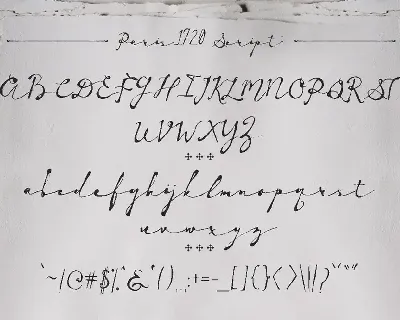 Paris 1720 Script
ABCDEFGHIJKLMNOPQRST
UVWXYZ
abcdefghijklmnopqrst
uvwxyz
`~!@#$%^&*(),.;:+=-_[]{}<>\|/?"""